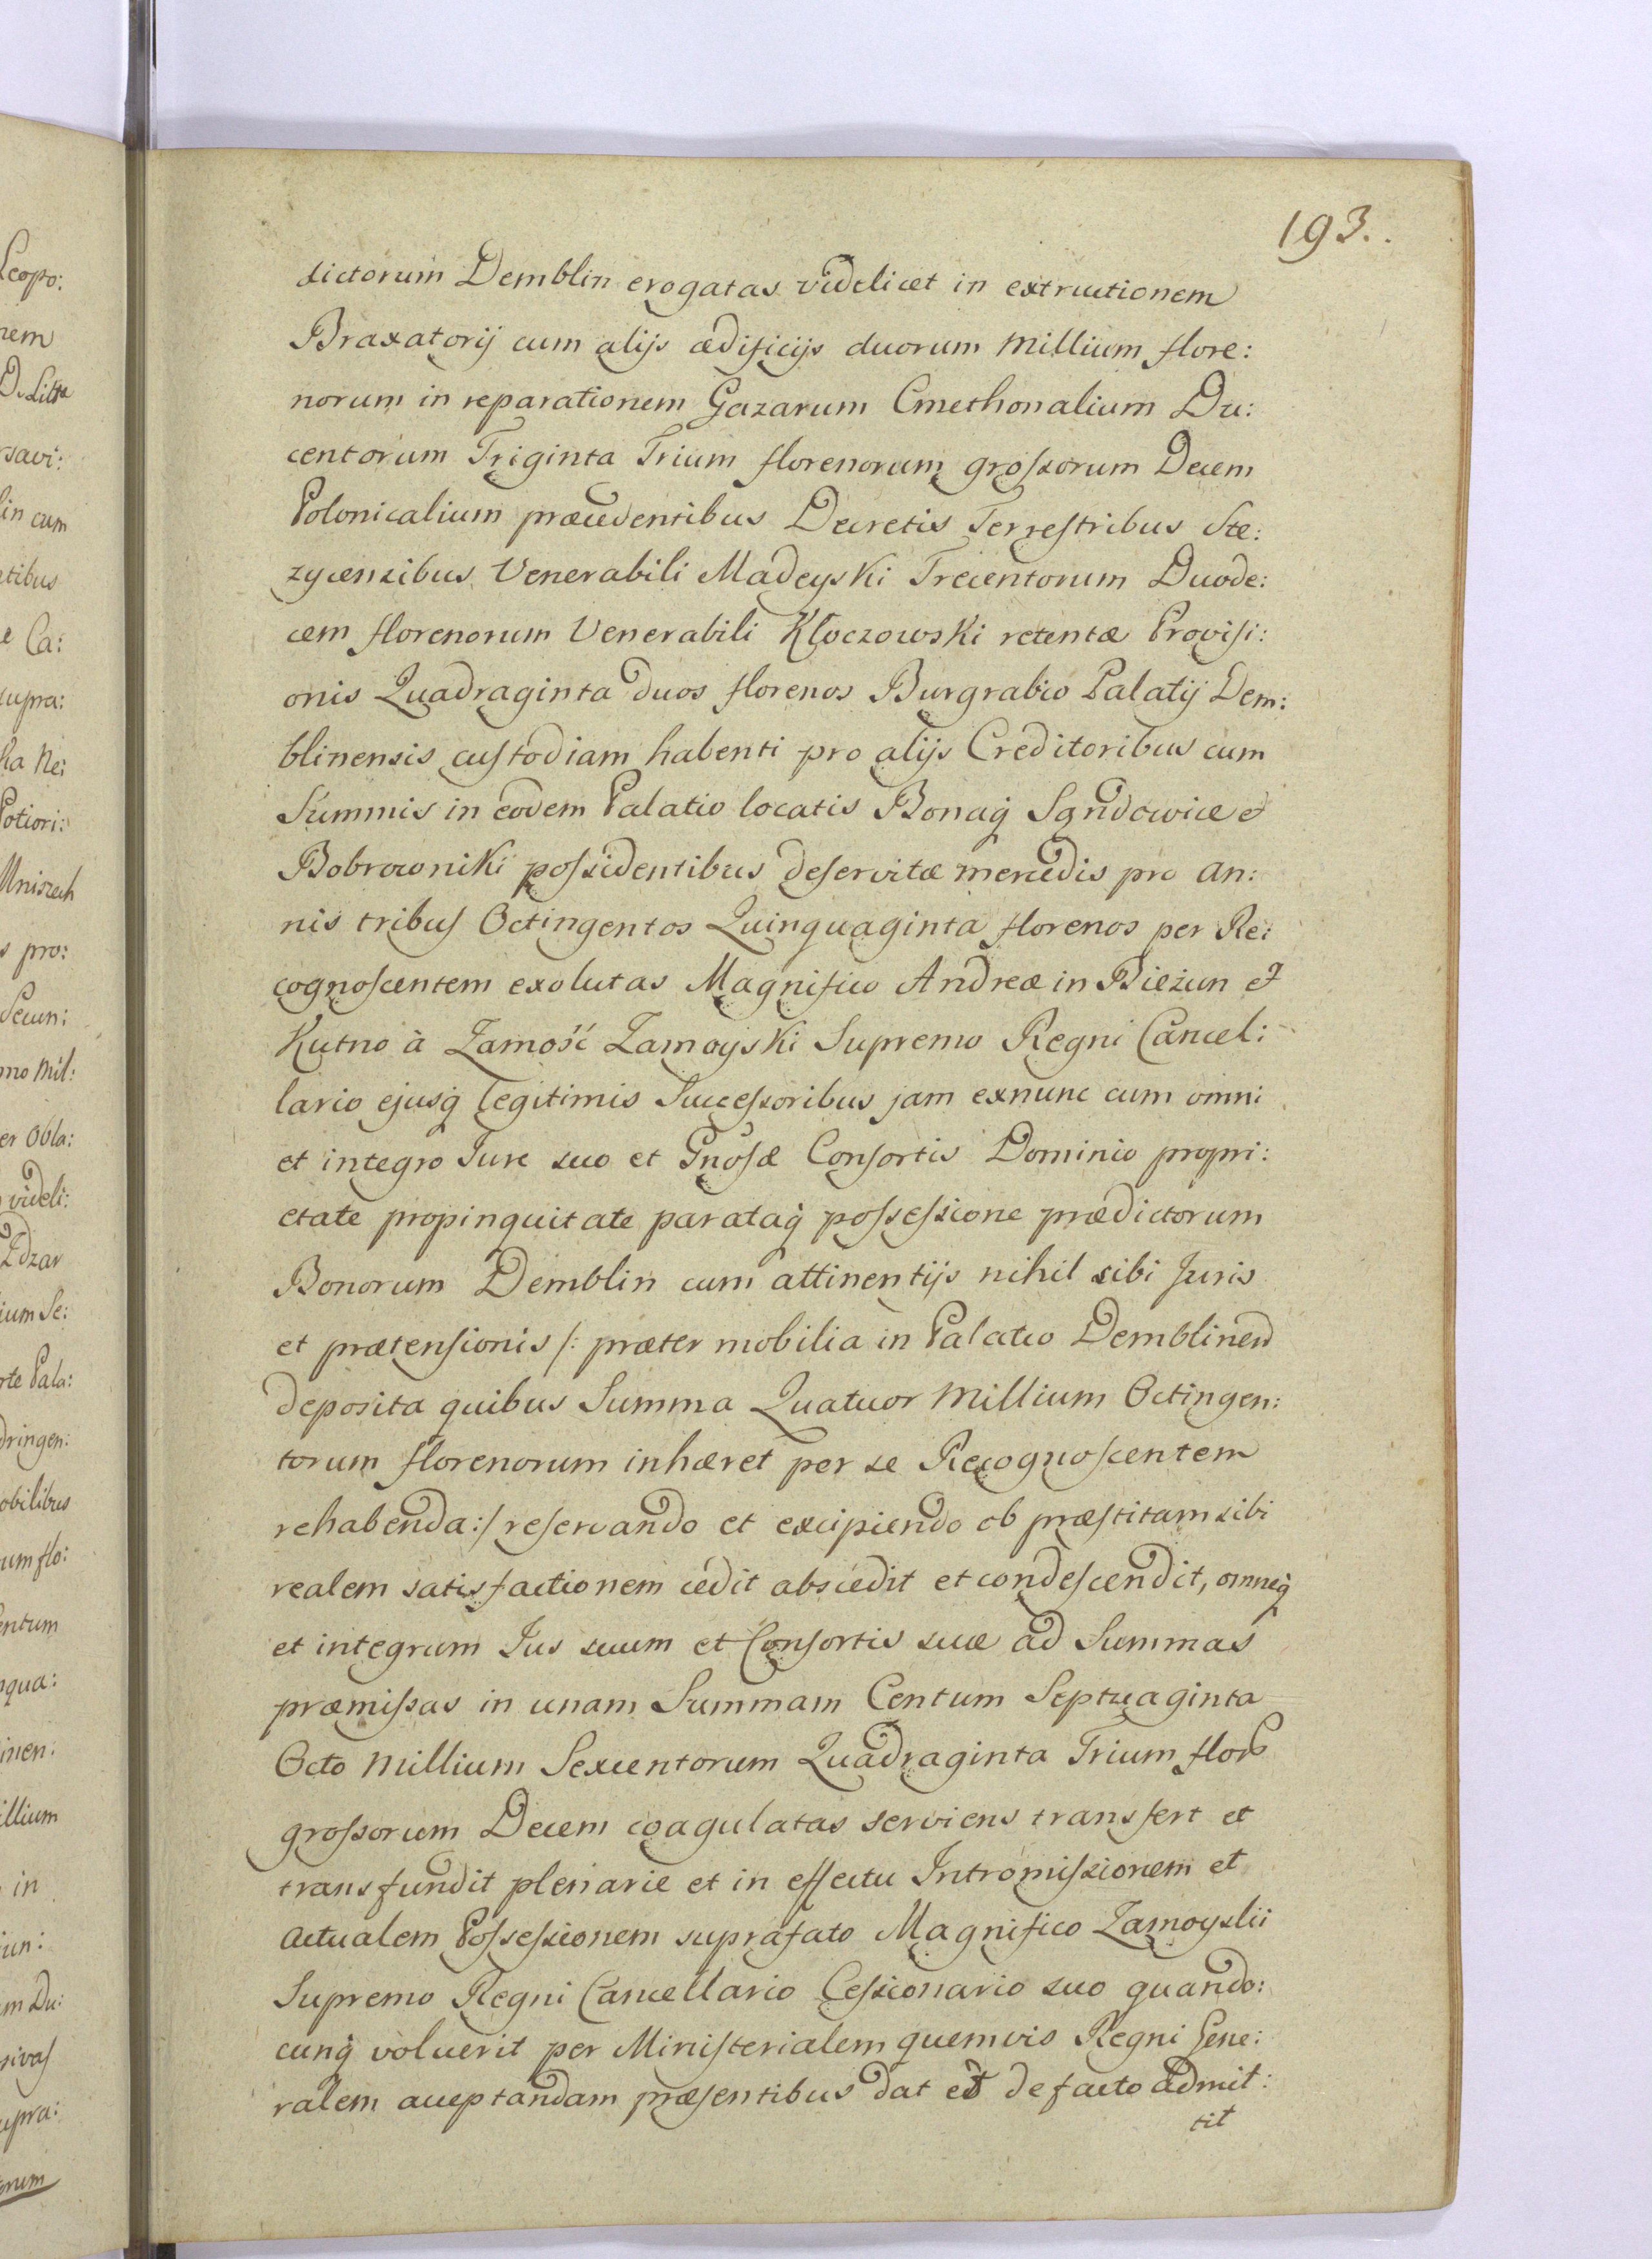 193.
dictorum Demblin erogatas videlicet in extructionem
Braxatorij cum alijs ædificijs duorum Millium flore:
norum in reparationem Gazarum Cmethonalium Du:
centorum Triginta Trium florenorum grossorum Decem
Polonicalium præcedentibus Decretis Terrestribus Stę:
zycensibus Venerabili Madeyski Trecentorum Duode:
cem florenorum Venerabili Kłoczowski retentæ Provisi:
onis Quadraginta duos florenos Burgrabio Palatij Dem:
blinensis custodiam habenti pro alijs Creditoribus cum
Summis in eodem Palatio locatis Bonaq́
Bobrowniki possidentibus deservitæ mercedis pro An:
nis tribus Octingentos Quinquaginta florenos per Re:
cognoscentem exolutas Magnifico Andreæ in Bieżun et
Kutno à Zamość Zamoyski Supremo Regni Cancel:
lario ejusq́ legitimis Successoribus jam exnunc cum omni
et integro Jure suo et Gnosæ Consortis Dominio propri:
etate propinquitate parataq́ possessione prædictorum
Bonorum Demblin cum attinentijs nihil sibi Juris
et prætensionis /: præter mobilia in Palatio Demblinen
deposita quibus Summa Quatuor Millium Octingen:
torum florenorum inhæret per se Recognoscentem
rehabenda :/ reservando et excipiendo ob præstitam sibi
realem satisfactionem cedit abscedit et condescendit, omneq́
et integrum Jus suum et Consortis suæ ad Summas
præmissas in unam Summam Centum Septuaginta
Octo Millium Sexcentorum Quadraginta Trium flor
grossorum Decem coagulatas serviens transfert et
transfundit plenarie et in effectu Intromissionem et
actualem Possessionem suprafato Magnifico Zamoyslii
Supremo Regni Cancellario Cessionario suo quando:
cunq́ voluerit per Ministerialem quemvis Regni Gene:
ralem acceptandam præsentibus dat et de facto admit:
tit